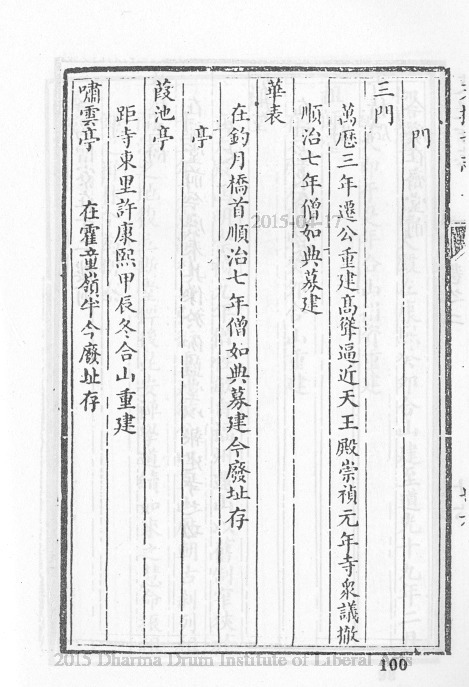 門
三門
萬歷三年遷公重建高聳逼近天王殿崇禎元年寺衆議撤
順治七年僧如典募建
華表
在釣月橋首順治七年僧如典募建今廢址存
亭
葭池亭
距寺東里許康熙甲辰冬合山重建
嘯雲亭 在霍童嶺半今廢址存
2015-04-17
2015 Dharma Drum Institute of Liberal Arts
100